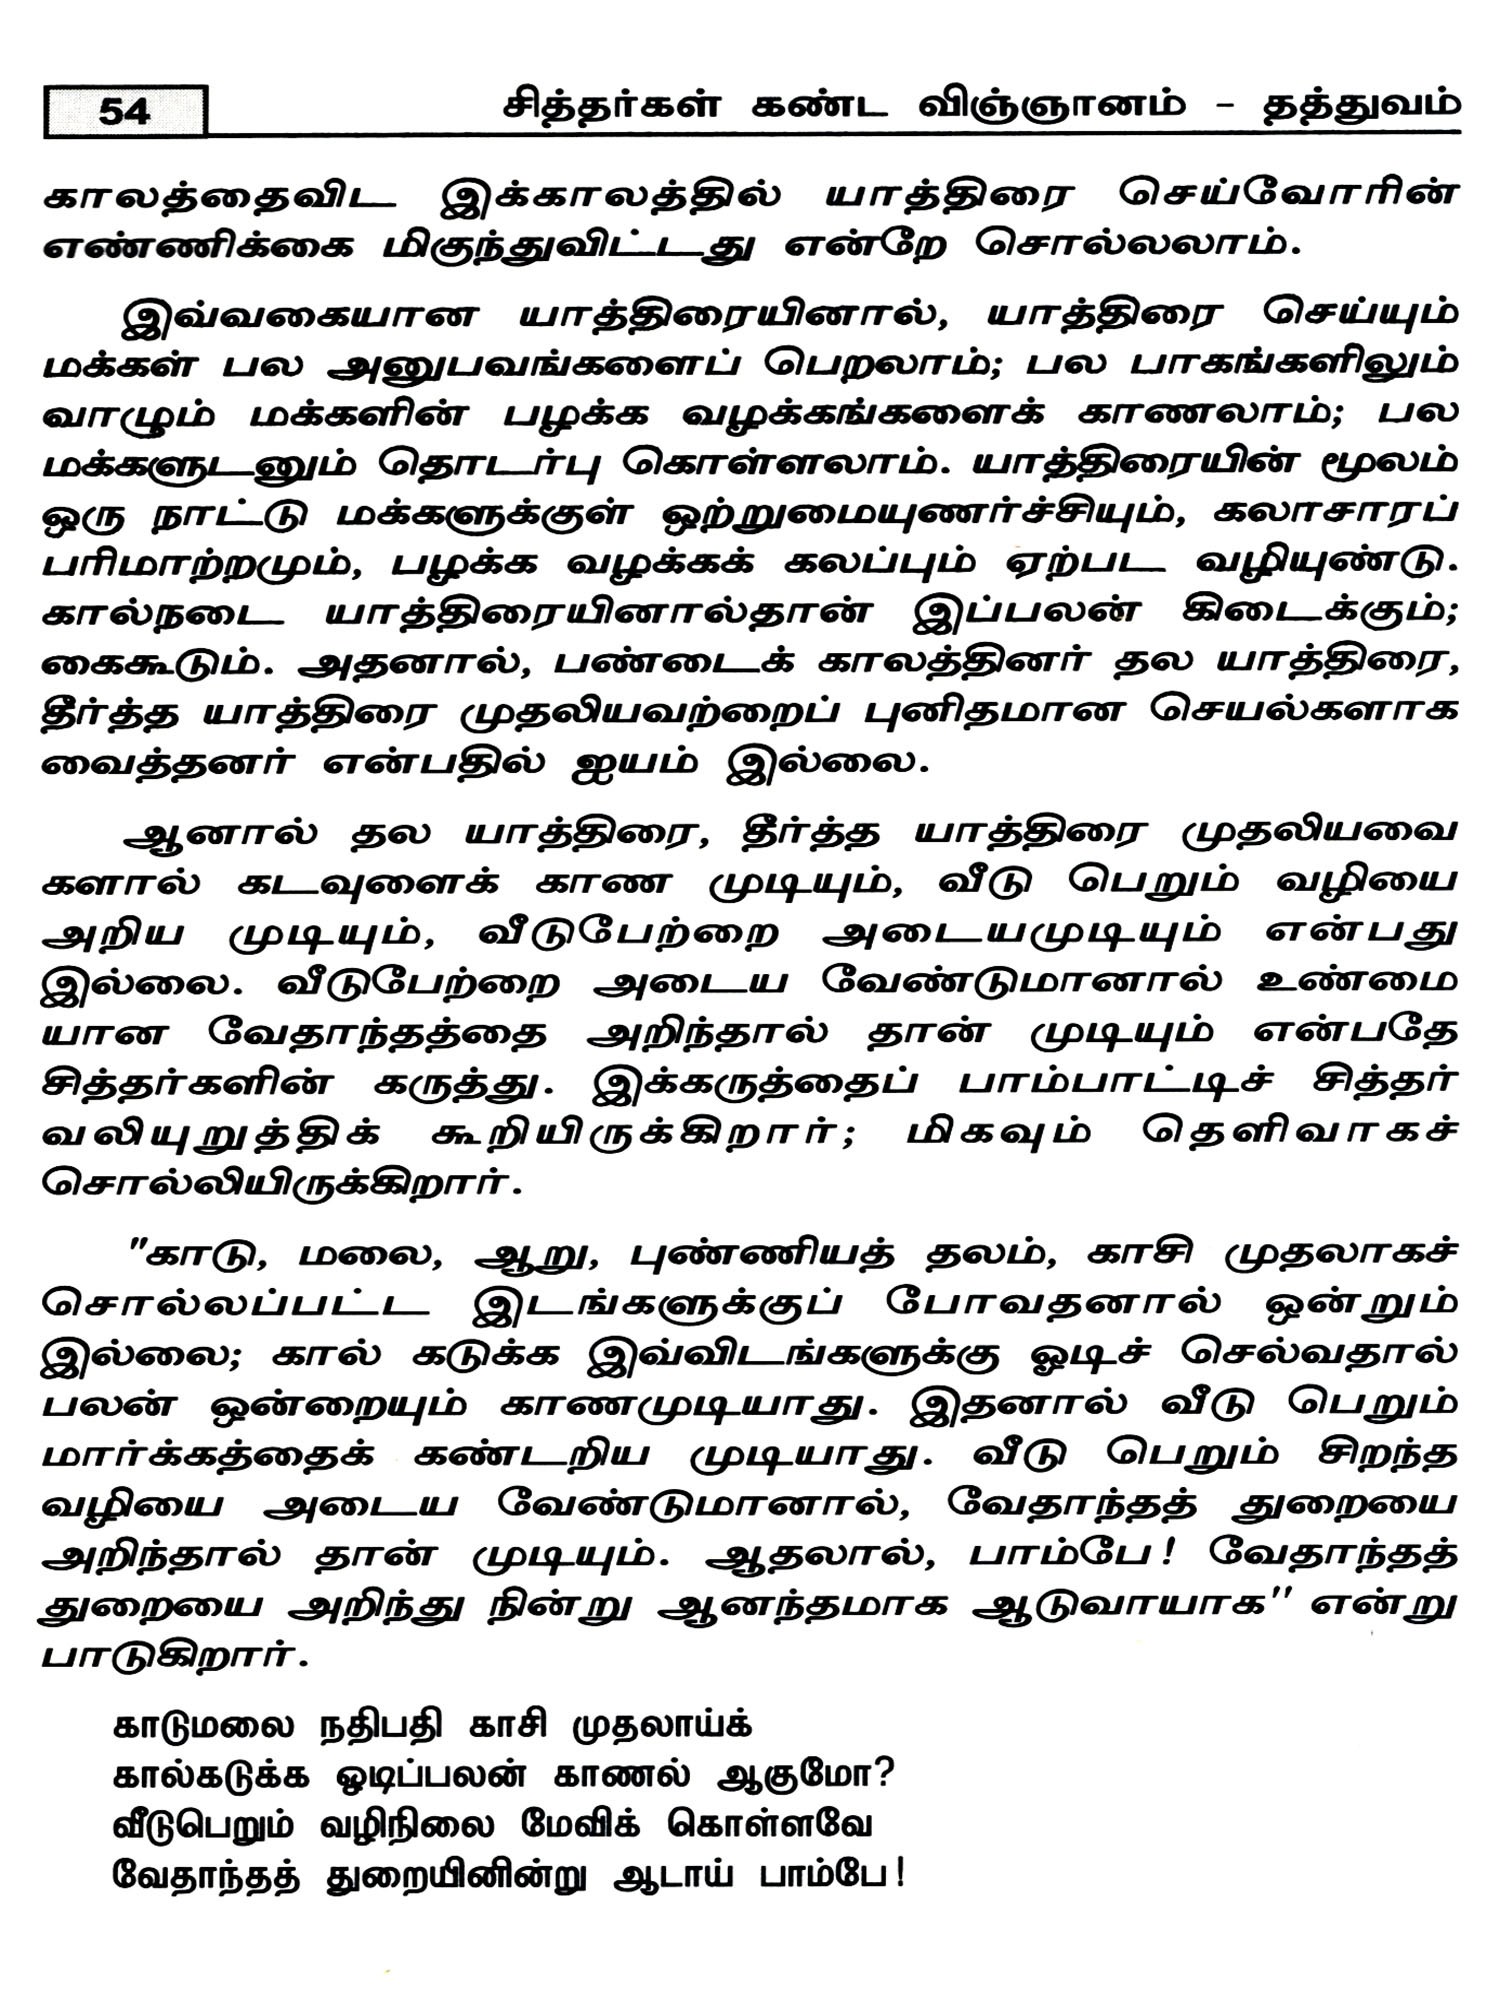 54
சித்தர்கள் கண்ட விஞ்ஞானம் – தத்துவம்
காலத்தைவிட இக்காலத்தில் யாத்திரை செய்வோரின்
எண்ணிக்கை மிகுந்துவிட்டது என்றே சொல்லலாம்.
இவ்வகையான யாத்திரையினால், யாத்திரை செய்யும்
மக்கள் பல அனுபவங்களைப் பெறலாம்; பல பாகங்களிலும்
வாழும் மக்களின் பழக்க வழக்கங்களைக் காணலாம்; பல
மக்களுடனும் தொடர்பு கொள்ளலாம். யாத்திரையின் மூலம்
ஒரு நாட்டு மக்களுக்குள் ஒற்றுமையுணர்ச்சியும், கலாசாரப்
பரிமாற்றமும், பழக்க வழக்கக் கலப்பும் ஏற்பட வழியுண்டு.
கால்நடை யாத்திரையினால்தான் இப்பலன் கிடைக்கும்;
கைகூடும். அதனால், பண்டைக் காலத்தினர் தல யாத்திரை,
தீர்த்த யாத்திரை முதலியவற்றைப் புனிதமான செயல்களாக
வைத்தனர் என்பதில் ஐயம் இல்லை.
ஆனால் தல யாத்திரை, தீர்த்த யாத்திரை முதலியவை
களால் கடவுளைக் காண முடியும், வீடு பெறும் வழியை
அறிய முடியும், வீடுபேற்றை அடையமுடியும் என்பது
இல்லை. வீடுபேற்றை அடைய வேண்டுமானால் உண்மை
யான வேதாந்தத்தை அறிந்தால் தான் முடியும் என்பதே
சித்தர்களின் கருத்து. இக்கருத்தைப் பாம்பாட்டிச் சித்தர்
வலியுறுத்திக் கூறியிருக்கிறார்; மிகவும் தெளிவாகச்
சொல்லியிருக்கிறார்.
"காடு, மலை, ஆறு, புண்ணியத் தலம், காசி முதலாகச்
சொல்லப்பட்ட இடங்களுக்குப் போவதனால் ஒன்றும்
இல்லை; கால் கடுக்க இவ்விடங்களுக்கு ஓடிச் செல்வதால்
பலன் ஒன்றையும் காணமுடியாது. இதனால் வீடு பெறும்
மார்க்கத்தைக் கண்டறிய முடியாது. வீடு பெறும் சிறந்த
வழியை அடைய வேண்டுமானால், வேதாந்தத் துறையை
அறிந்தால் தான் முடியும். ஆதலால், பாம்பே! வேதாந்தத்
துறையை அறிந்து நின்று ஆனந்தமாக ஆடுவாயாக" என்று
பாடுகிறார்.
காடுமலை நதிபதி காசி முதலாய்க்
கால்கடுக்க ஓடிப்பலன் காணல் ஆகுமோ?
வீடுபெறும் வழிநிலை மேவிக் கொள்ளவே
வேதாந்தத் துறையினின்று ஆடாய் பாம்பே!